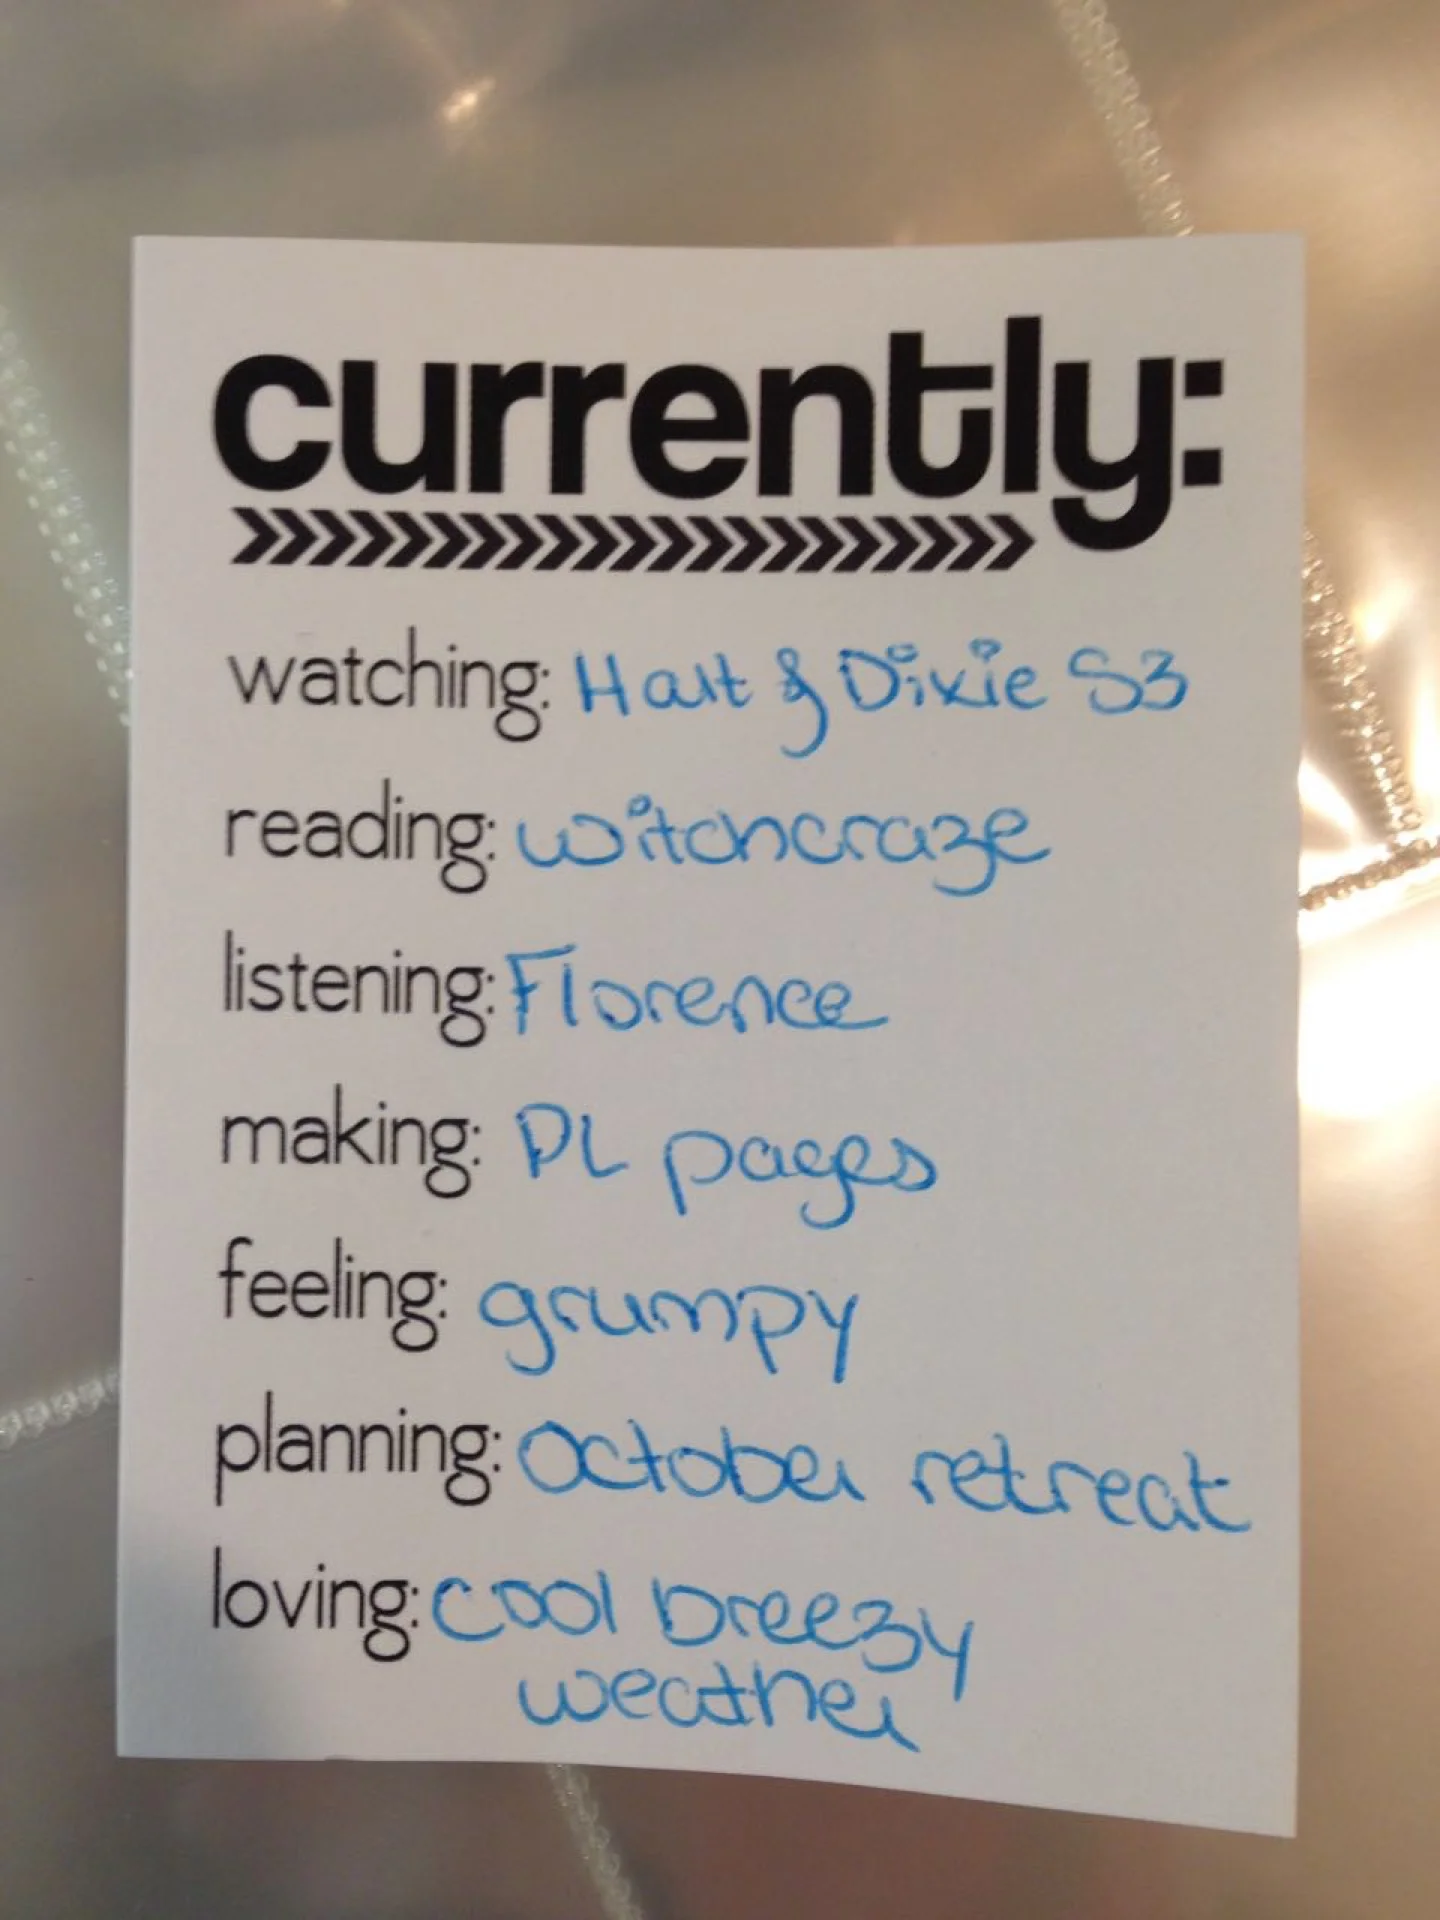 currently:
watching: Hart of Dixie S3
reading: witchcraze
listening: Florence
making: PL pages
feeling: grumpy
planning: October retreat
loving: cool breezy
weather